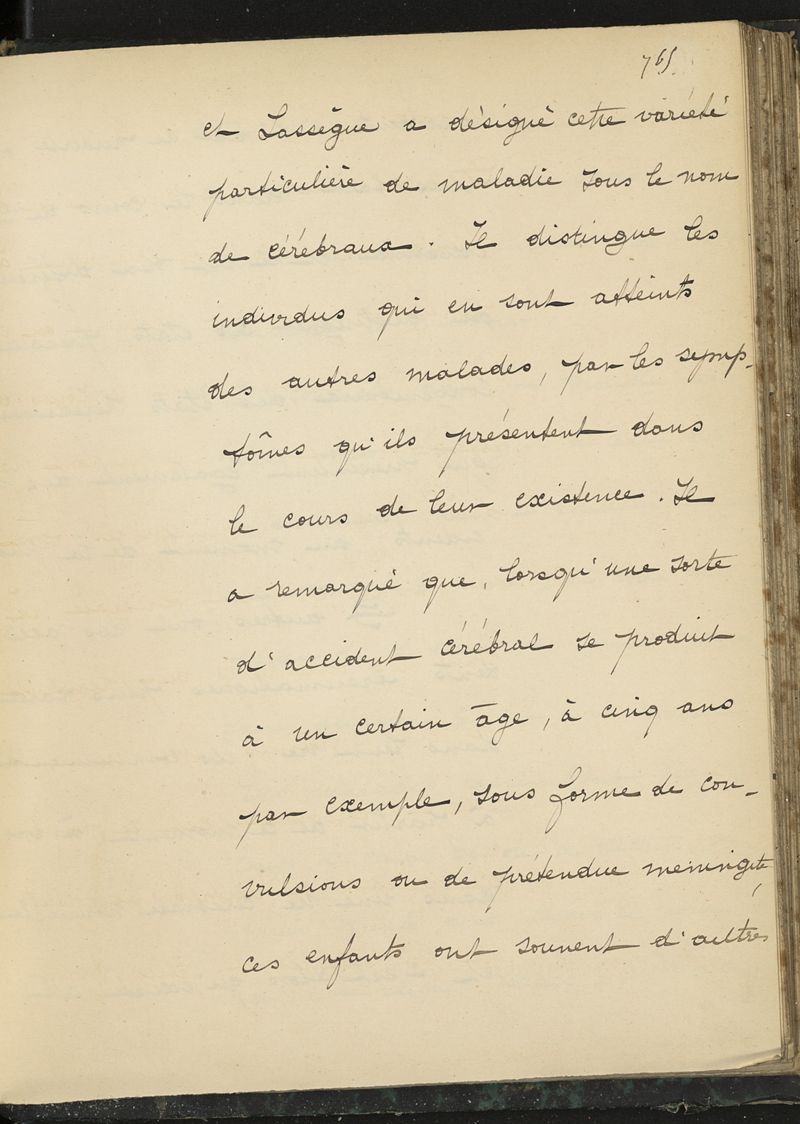 765
et Lassègue a désigné cette variété
particulière de maladie sous le nom
de cérébraux. Il distingue les
individus qui en sont atteints
des autres malades, par les symp-
tômes qu'ils présentent dans
le cours de leur existence. Il
a remarqué que, lorsqu'une sorte
d'accident cérébral se produit
à un certain âge, à cinq ans
par exemple, sous forme de con-
vulsions ou de prétendue meningite,
ces enfants ont souvent d'autres